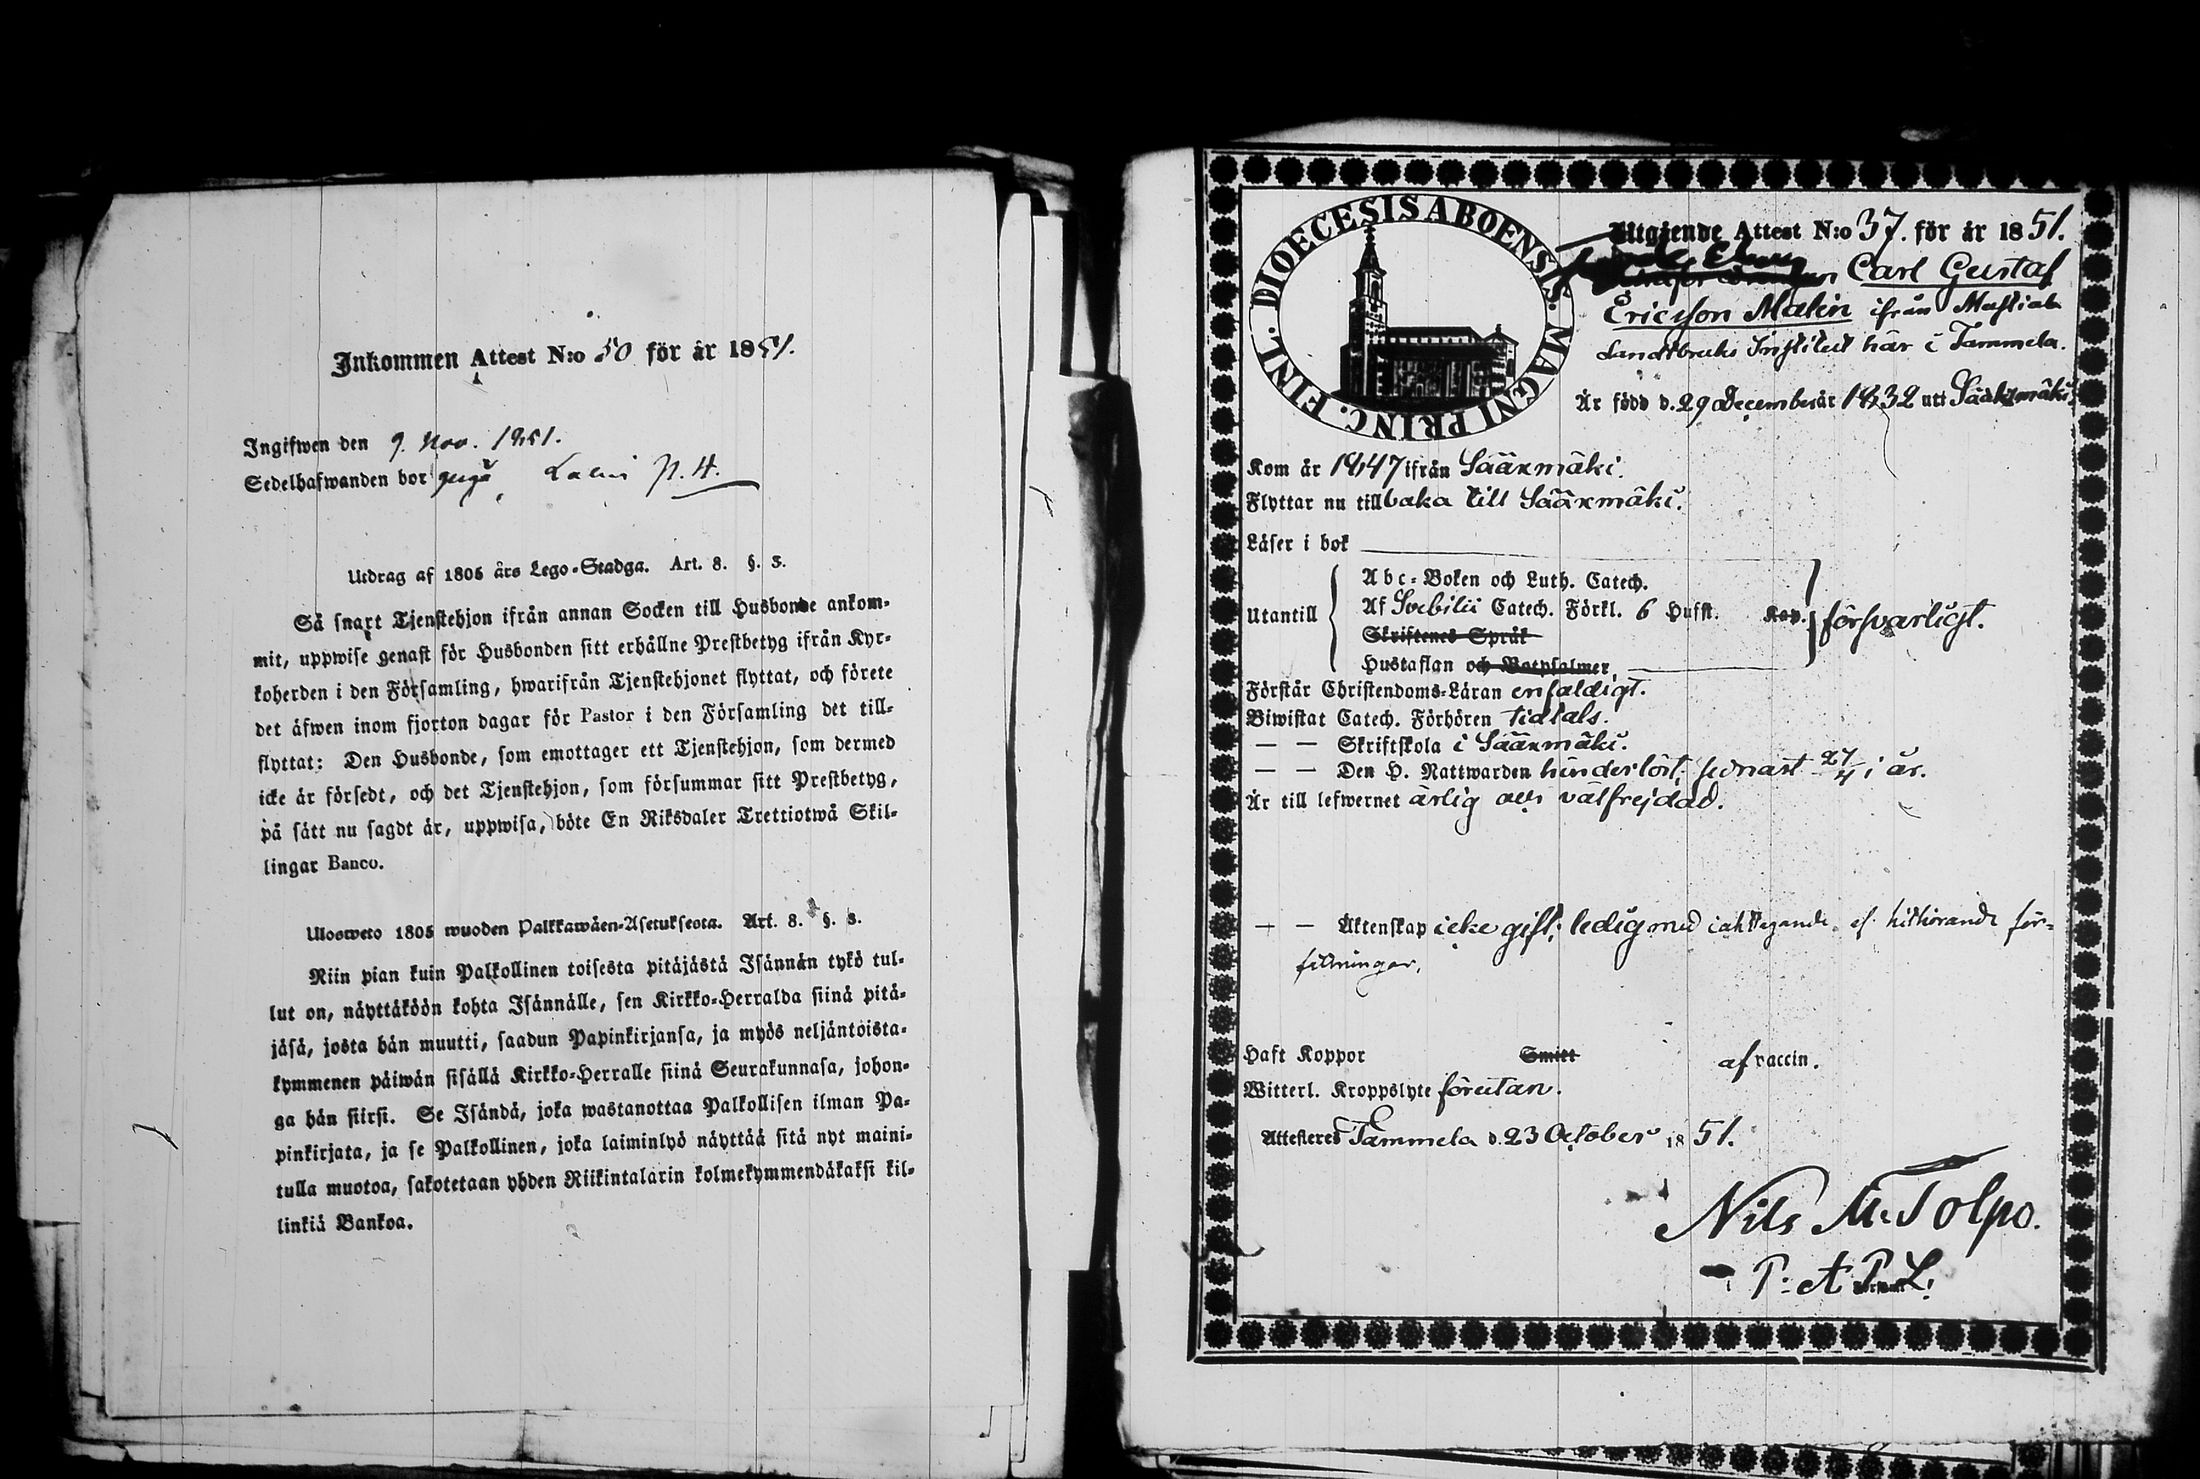 Inkommen Attest N:o 50 för år 1851.
Ingifwen den 9. Nov. 1851.
Sedelhafwanden bor
Utdrag af 1805 års Lego-Stadga. Art. 8. §. 3.
Så snart Tjenstehjon ifrån annan Socken till Husbonde ankom-
mit, uppwise genast för Husbonden sitt erhållne Prestbetyg ifrån Kyr-
koherden i den Församling, hwarifrån Tjenstehjonet flyttat, och förete
det äfwen inom fjorton dagar för Pastor i den Församling det till-
flyttat: Den Husbonde, som emottager ett Tjenstehjon, som dermed
icke är försedt, och det Tjenstehjon, som försummar sitt Prestbetyg,
på sätt nu sagdt är, uppwisa, böte En Riksdaler Trettiotwå Skil-
lingar Banco.
Ulosweto 1805 wuoden Palkkawäen-Asetuksesta. Art. 8. §. 3.
Niin pian kuin Palkollinen toisesta pitäjästä Isännän tykö tul-
lut on, näyttäköön kohta Isännälle, sen Kirkko-Herralda siinä pitä-
jäsä, josta hän muutti, saadun Papinkirjansa, ja myös neljäntoista-
kymmenen päiwän sisällä Kirkko-Herralle siinä Seurakunnasa, johon-
ga hän siirsi. Se Isändä, joka wastanottaa Palkollisen ilman Pa-
pinkirjata, ja se Palkollinen, joka laiminlyö näyttää sitä nyt maini-
tulla muotoa, sakotetaan yhden Riikintalarin kolmekymmendäkaksi kil-
linkiä Bankoa.
DIOECESIS ABOENSIS. MAGNI PRINC. FINL.
Utgående Attest N:o 37. för år 1851.
Carl Gustaf
Ericsson Malin ifrån Mustiala
Landtbruks Institut här i Tammela.
Är född d. 29 December år 1832 uti Sääksmäki
Kom år 1847 ifrån Sääxmäki.
Flyttar nu tillbaka till Sääxmäki.
Läser i bok
Utantill
Abc-Boken och Luth. Catech.
Af Svebilii Catech. Förkl. 6 Hufst. Kap.
Skriftenes Språk
Hustaflan och Botpsalmer,
försvarligt.
Förstår Christendoms-Läran enfaldigt.
Biwistat Catech. Förhören tidtals.
— — Skriftskola i Sääxmäki.
— — Den H. Nattwarden hinderlöst, sednast 27/4 i år.
Är till lefwernet ärlig och välfrejdad.
— — Äktenskap icke gift; ledig med iakttagande af hithörande för-
fattningar.
Haft Koppor Smitt af vaccin.
Witterl. Kroppslyte förutan.
Attesteres Tammela d. 23 October 1851.
Nils M. Tolpo.